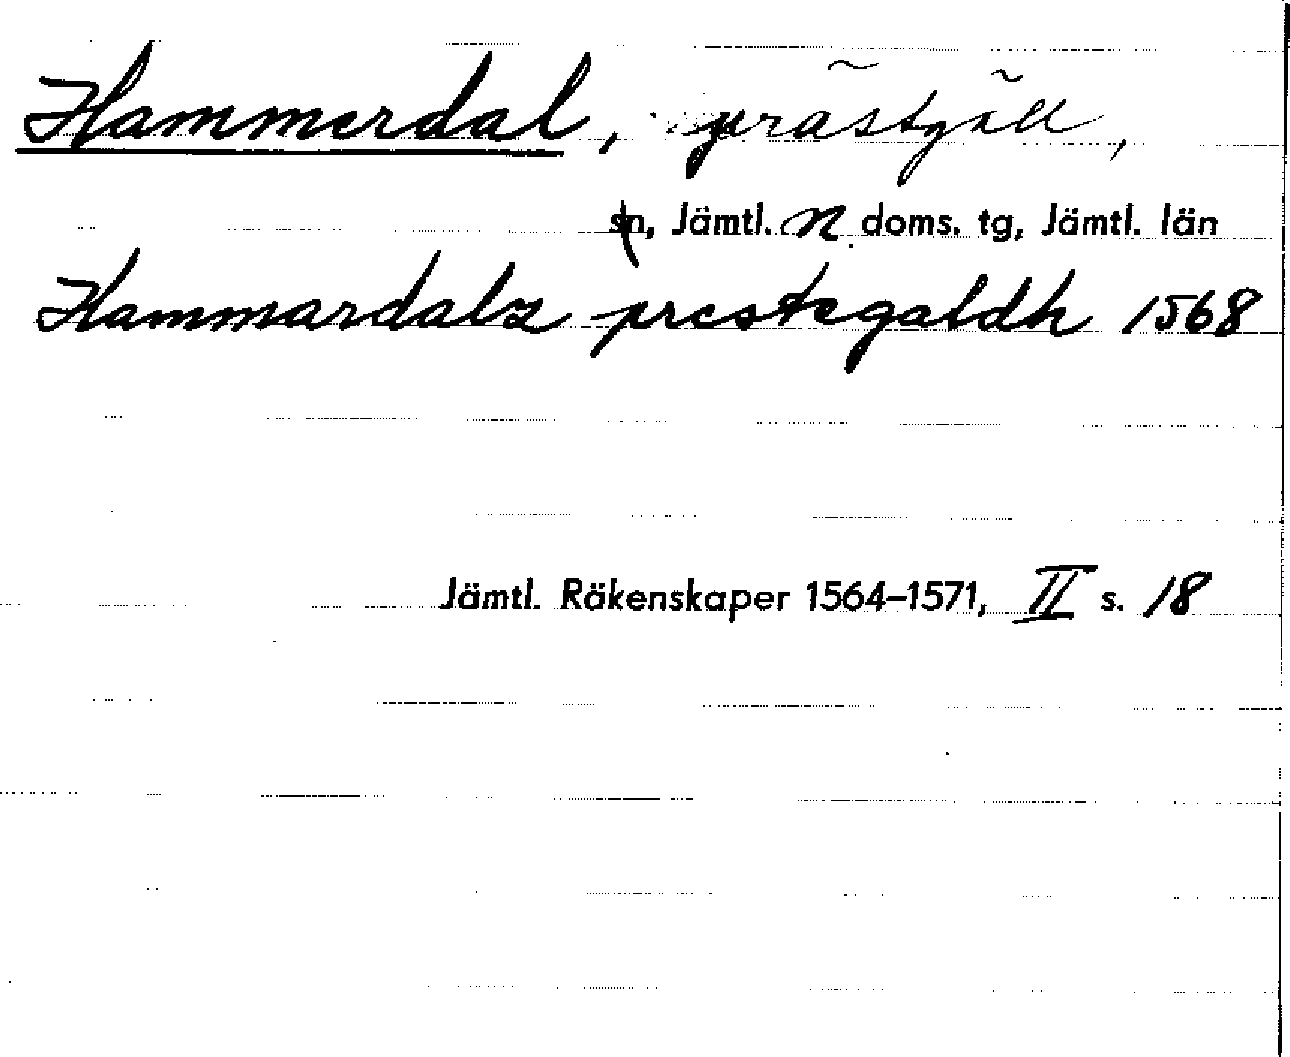 Hammerdal, prästgäll,
sn, Jämtl. n. doms. tg, Jämtl. län
Hammardalz prestegaldh 1568
Jämtl. Räkenskaper 1564–1571, II s. 18